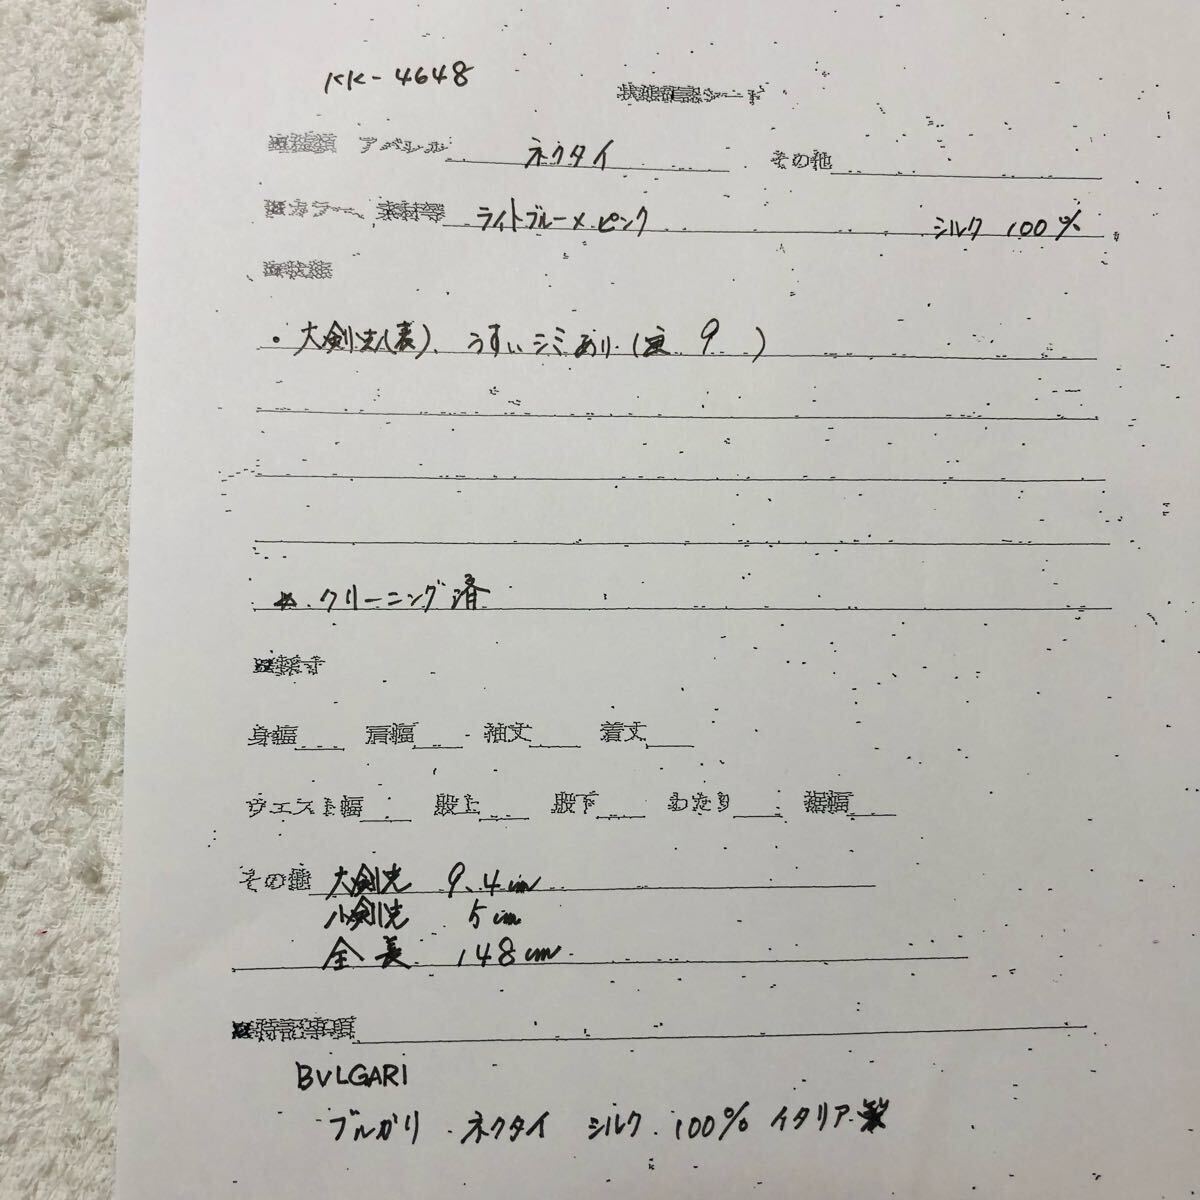 KK-4648
状態確認シート
※種類 アパレル ネクタイ その他
※カラー、素材等 ライトブルー×ピンク シルク 100%
※状態
・大剣先(表)、うすいシミあり(写 9 )
☆ クリーニング済
※採寸
身幅 肩幅 袖丈 着丈
ウエスト幅 股上 股下 わたり 裾幅
その他 大剣先 9.4cm
小剣先 5cm
全長 148cm
※特記事項
BVLGARI
ブルガリ ネクタイ シルク 100% イタリア製